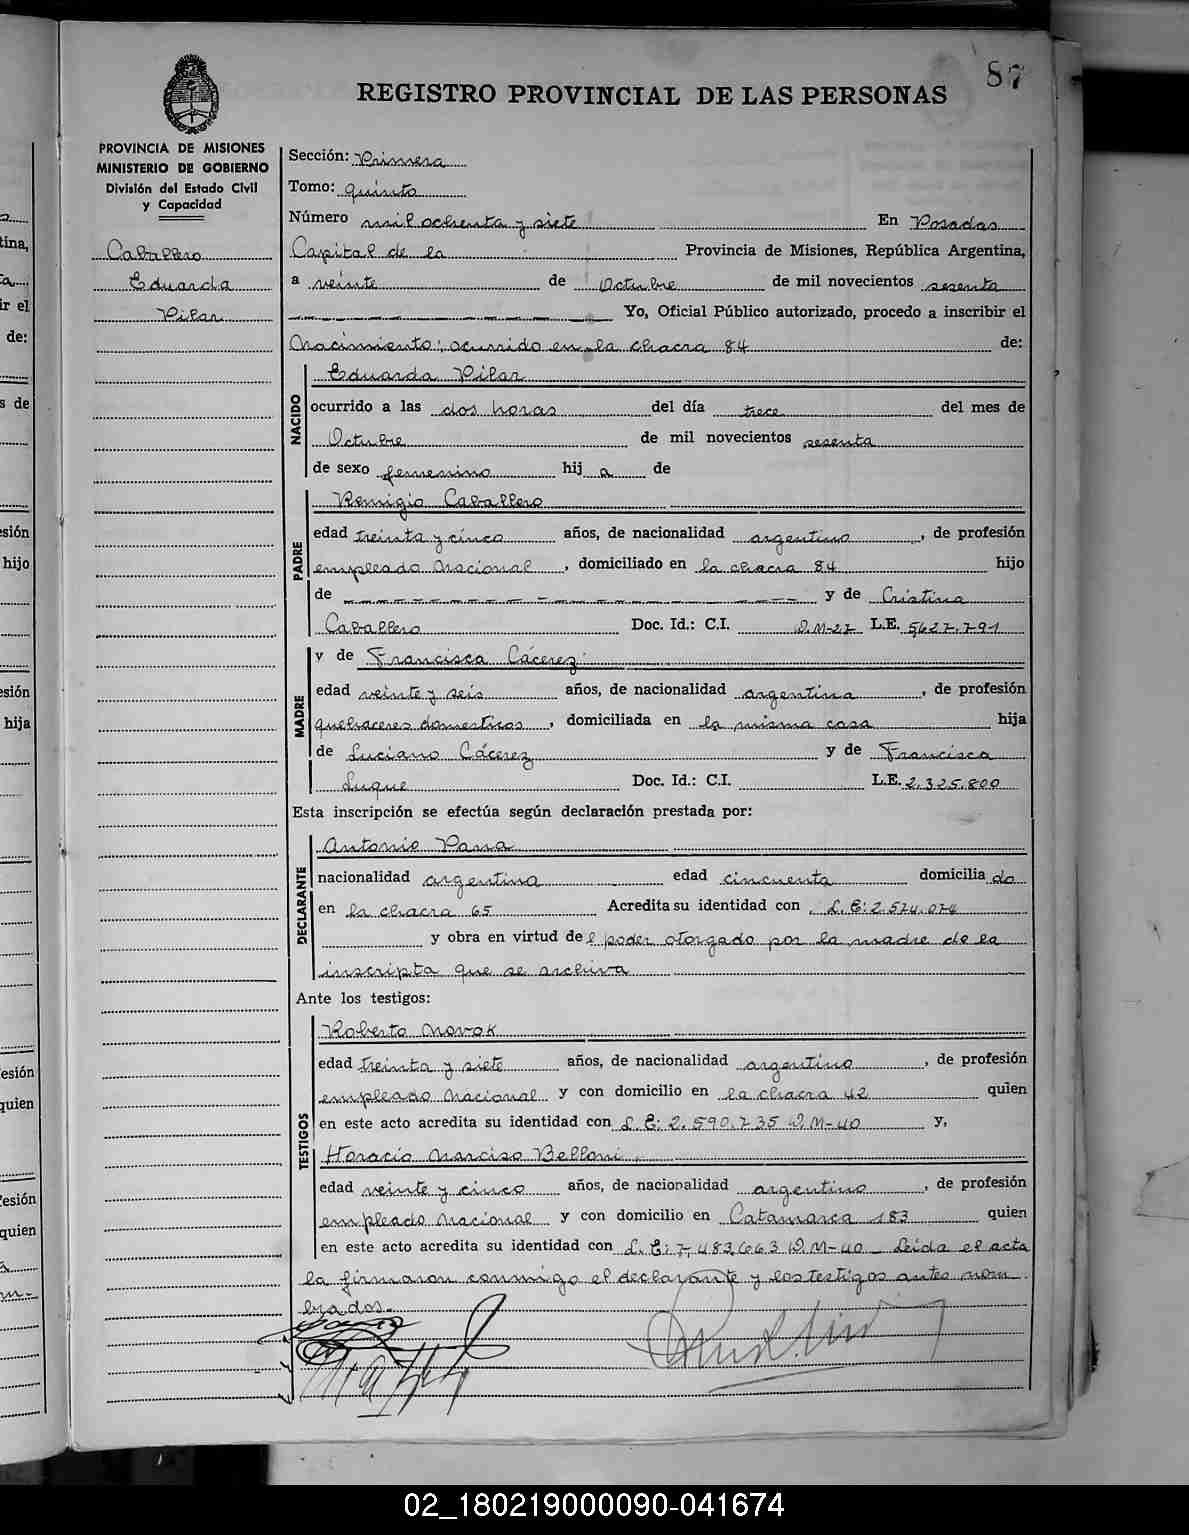 87
REGISTRO PROVINCIAL DE LAS PERSONAS
PROVINCIA DE MISIONES
MINISTERIO DE GOBIERNO
División del Estado Civil
y Capacidad
Caballero
Eduarda
Pilar
Sección: Primera
Tomo: quinto
Número mil ochenta y siete En Posadas
Capital de la Provincia de Misiones, República Argentina,
a veinte de Octubre de mil novecientos sesenta
Yo, Oficial Público autorizado, procedo a inscribir el
Nacimiento: ocurrido en la chacra 84 de:
NACIDO
Eduarda Pilar
ocurrido a las dos horas del día trece del mes de
Octubre de mil novecientos sesenta
de sexo femenino hij a de
PADRE
Remigio Caballero
edad treinta y cinco años, de nacionalidad argentino, de profesión
empleado Nacional, domiciliado en la chacra 84 hijo
de y de Cristina
Caballero Doc. Id.: C.I. D.M-27 L.E. 5627.791
MADRE
y de Francisca Cácerez
edad veinte y seis años, de nacionalidad argentina, de profesión
quehaceres domesticos, domiciliada en la misma casa hija
de Luciano Cácerez y de Francisca
Luque Doc. Id.: C.I. L.E. 2.325.800
Esta inscripción se efectúa según declaración prestada por:
DECLARANTE
Antonio Parra
nacionalidad argentina edad cincuenta domicilia do
en la chacra 65 Acredita su identidad con L.E: 2.574.074
y obra en virtud de l poder otorgado por la madre de la
inscripta que se archiva
Ante los testigos:
TESTIGOS
Roberto Novok
edad treinta y siete años, de nacionalidad argentino, de profesión
empleado Nacional y con domicilio en la chacra 42 quien
en este acto acredita su identidad con L.E: 2.590.735 D.M-40 y,
Horacio Narciso Belloni
edad veinte y cinco años, de nacionalidad argentino, de profesión
empleado Nacional y con domicilio en Catamarca 183 quien
en este acto acredita su identidad con L.E: 7,483,663 D.M-40 _ Leida el acta
la firmaron conmigo el declarante y los testigos antes nom
brados.
02_180219000090-041674